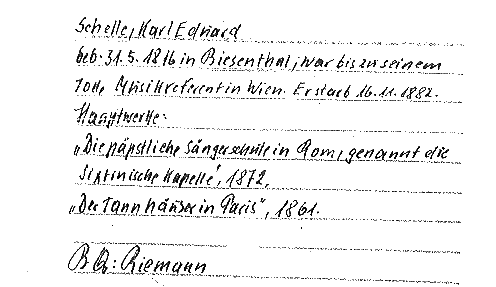 Schelle, Karl Eduard
geb. 31.5.1816 in Biesenthal, war bis zu seinem
Tode Musikreferent in Wien. Er starb 16.11.1882.
Hauptwerke:
„Die päpstliche Sängerschule in Rom, genannt die
Sixtinische Kapelle", 1872,
„Der Tannhäuser in Paris", 1861.
B Qu: Riemann